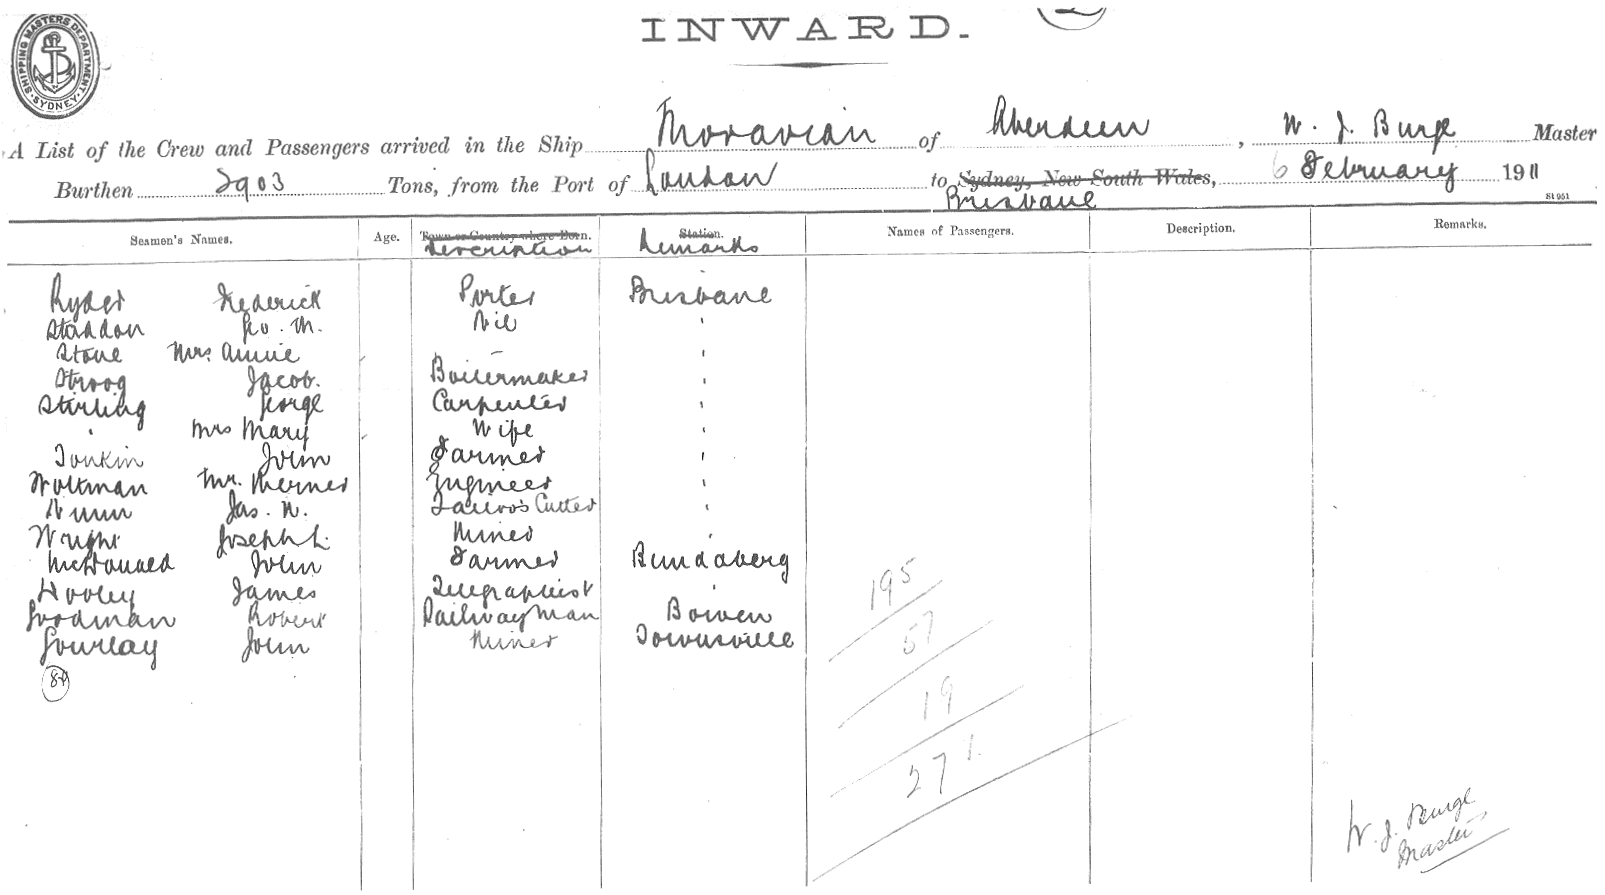 SHIPPING MASTERS DEPARTMENT. SYDNEY.
INWARD.
A List of the Crew and Passengers arrived in the Ship Moravian of Aberdeen, W. J. Burge Master
Burthen 2903 Tons, from the Port of London to Sydney, New South Wales, 6 February 1911
Brisbane
St 951
Seamen's Names. Age. Town or Country where Born. Station. Names of Passengers. Description. Remarks.
Description Remarks
Ryder Frederick Porter Brisbane
Staddon Geo. M. Nil "
Stone Mrs. Annie "
Stroog Jacob. Boilermaker "
Stirling George Carpenter "
" Mrs Mary Wife "
Tonkin John Farmer "
Woltman Mr. Werner Engineer "
Nunn Jas. W. Tailor's Cutter "
Wright Joseph L. Miner "
McDonald John Farmer Bundaberg
Hooley James Telegraphist "
Goodman Robert Railway Man Bowen
Gourlay John Miner Townsville
84
195
57
19
271.
W. J. Burge
Master